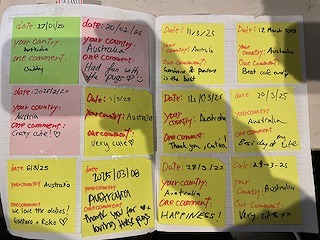 date: 27/01/25
your country:
Australia
one comment:
date: 20/02/25
your country:
Australia
one comment:
Had fun with
the pugs
date: 2025/2/20
your country:
Austria
one comment:
Crazy cute!
Date: 1/3/25
your country:
Australia
one comment:
very cute
date: 6/3/25
your country: Australia
one comment:
we love the doggies!
date: 2025/03/08
your country:
AUSTRALIA
one comment:
Thank you for
loving these pugs
date: 11/3/25
your country: Australia
one comment:
is the best
Date: 12 March 2025
your country:
Australia
One comment:
Best cafe ever
Date:
your country: Australia
One comment:
Thank you,
date: 20/3/25
your country:
Australia
One comment:
Best day of my life
Date: 28/3/20
your country:
Australia
One comment:
HAPPINESS!
Date: 29-03-25
your
Country: Australia
One comment:
Very cute xx